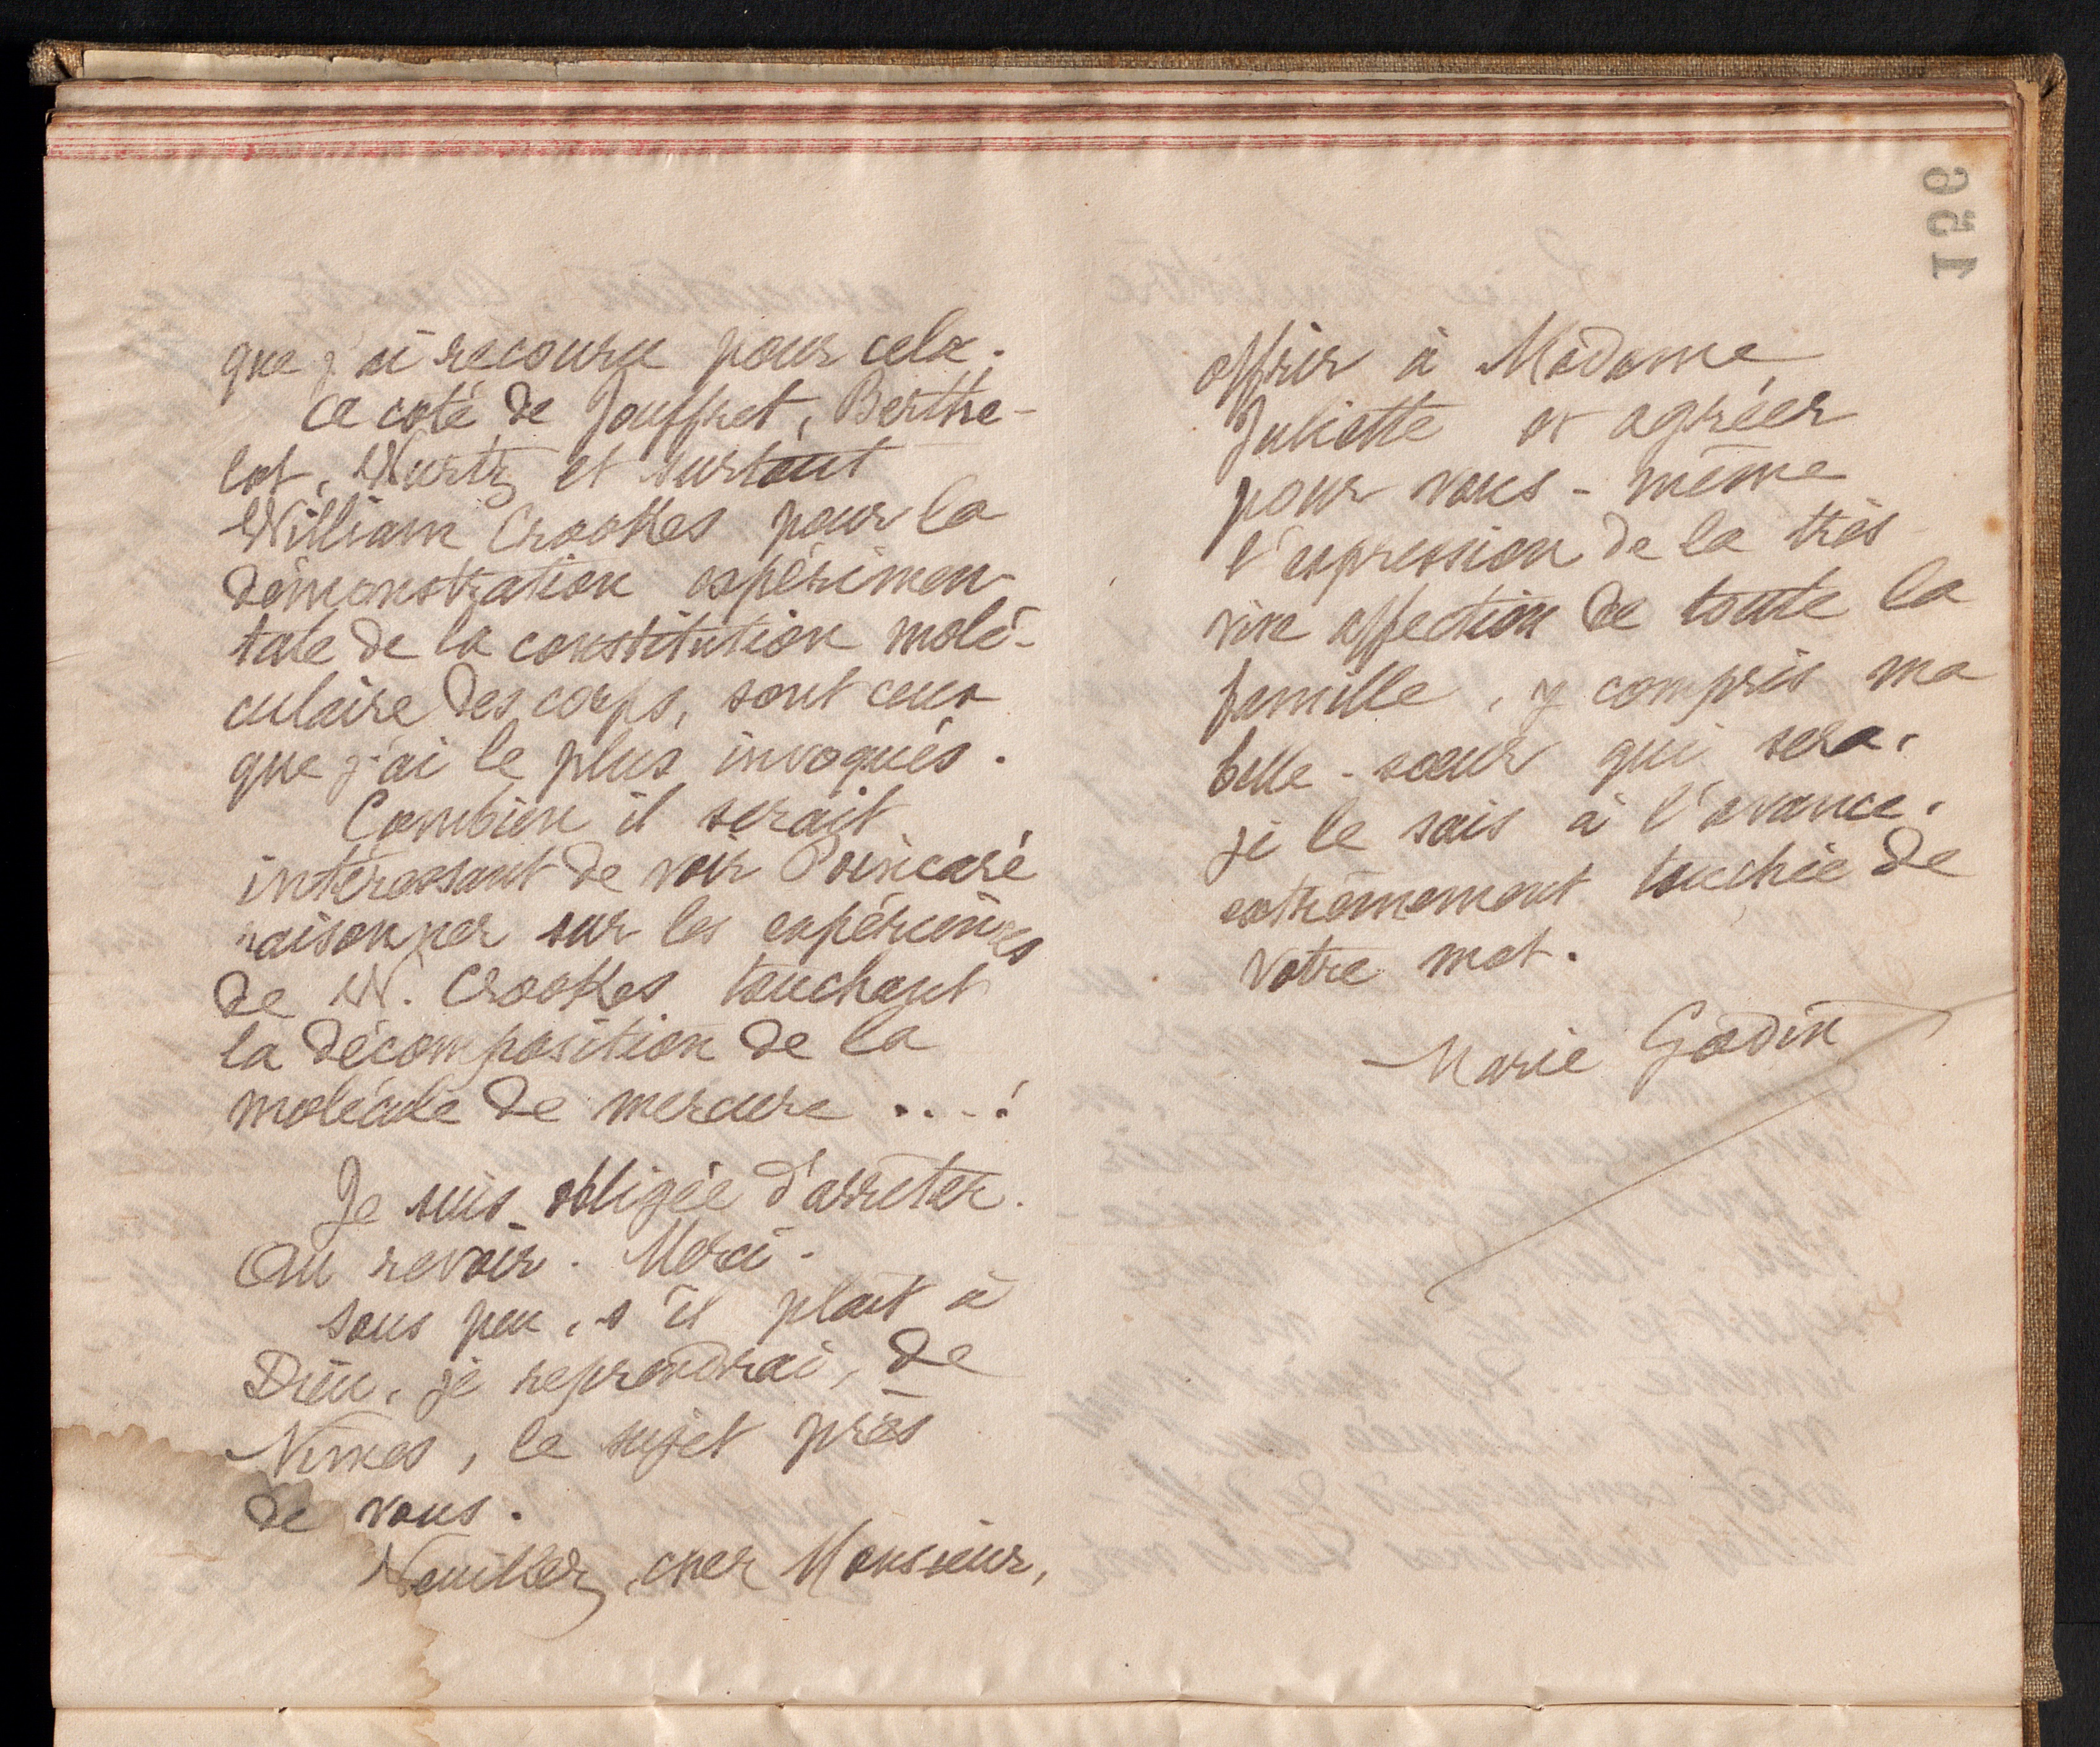 que j'ai recouru pour cela.
A coté de Jouffret, Berthe-
lot, Wurtz et surtout
William Crookes pour la
démonstration expérimen-
tale de la constitution molé-
culaire des corps, sont ceux
que j'ai le plus invoqués.
Combien il serait
intéressant de voir Poincaré
raisonner sur les expériences
de W. Crookes touchant
la décomposition de la
molécule de mercure ....!
Je suis obligée d'arrêter.
Au revoir. Merci.
Sous peu, s'il plaît à
Dieu, je reprendrai, de
Nîmes, le sujet près
de vous.
Veuillez, cher Monsieur,
156
offrir à Madame
Juliette et agréer
pour vous-même
l'expression de la très
vive affection de toute la
famille, y compris ma
belle-sœur qui sera,
je le sais à l'avance,
extrêmement touchée de
votre mot.
Marie Godin